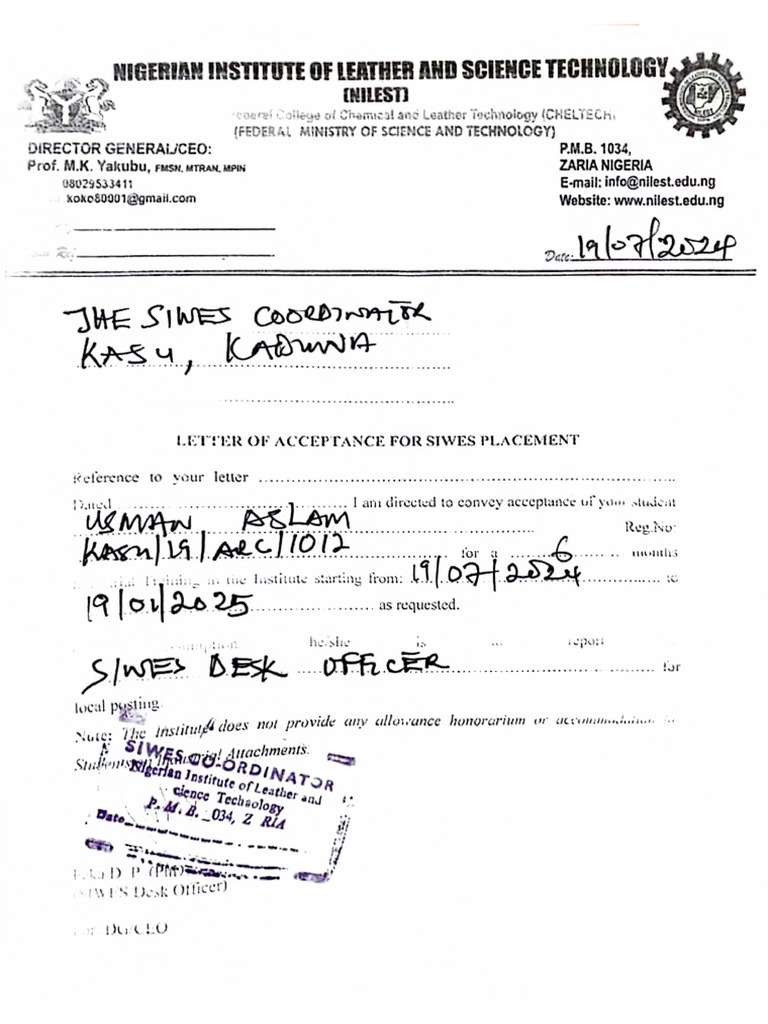 NIGERIAN INSTITUTE OF LEATHER AND SCIENCE TECHNOLOGY
(NILEST)
Federal College of Chemical and Leather Technology (CHELTECH)
(FEDERAL MINISTRY OF SCIENCE AND TECHNOLOGY)
DIRECTOR GENERAL/CEO:
Prof. M.K. Yakubu, FMSN, MTRAN, MPIN
08029533411
koko80001@gmail.com
P.M.B. 1034,
ZARIA NIGERIA
E-mail: info@nilest.edu.ng
Website: www.nilest.edu.ng
Date: 19/07/2024
THE SIWES COORDINATOR
KASU, KADUNA
LETTER OF ACCEPTANCE FOR SIWES PLACEMENT
Reference to your letter
Dated I am directed to convey acceptance of your student
USMAN ASLAM Reg.No:
KASU/19/ARC/1012 for a 6 months
Training in the Institute starting from: 19/07/2024 to
19/01/2025 as requested.
he/she is report
SIWES DESK OFFICER for
local posting.
Note: The Institute does not provide any allowance honorarium or accommodation to
Students Industrial Attachments.
SIWES CO-ORDINATOR
Nigerian Institute of Leather and
cience Technology
P. M. B. 034, Z RIA
Date
D. P. (PM)
(SIWES Desk Officer)
For: DG/CEO